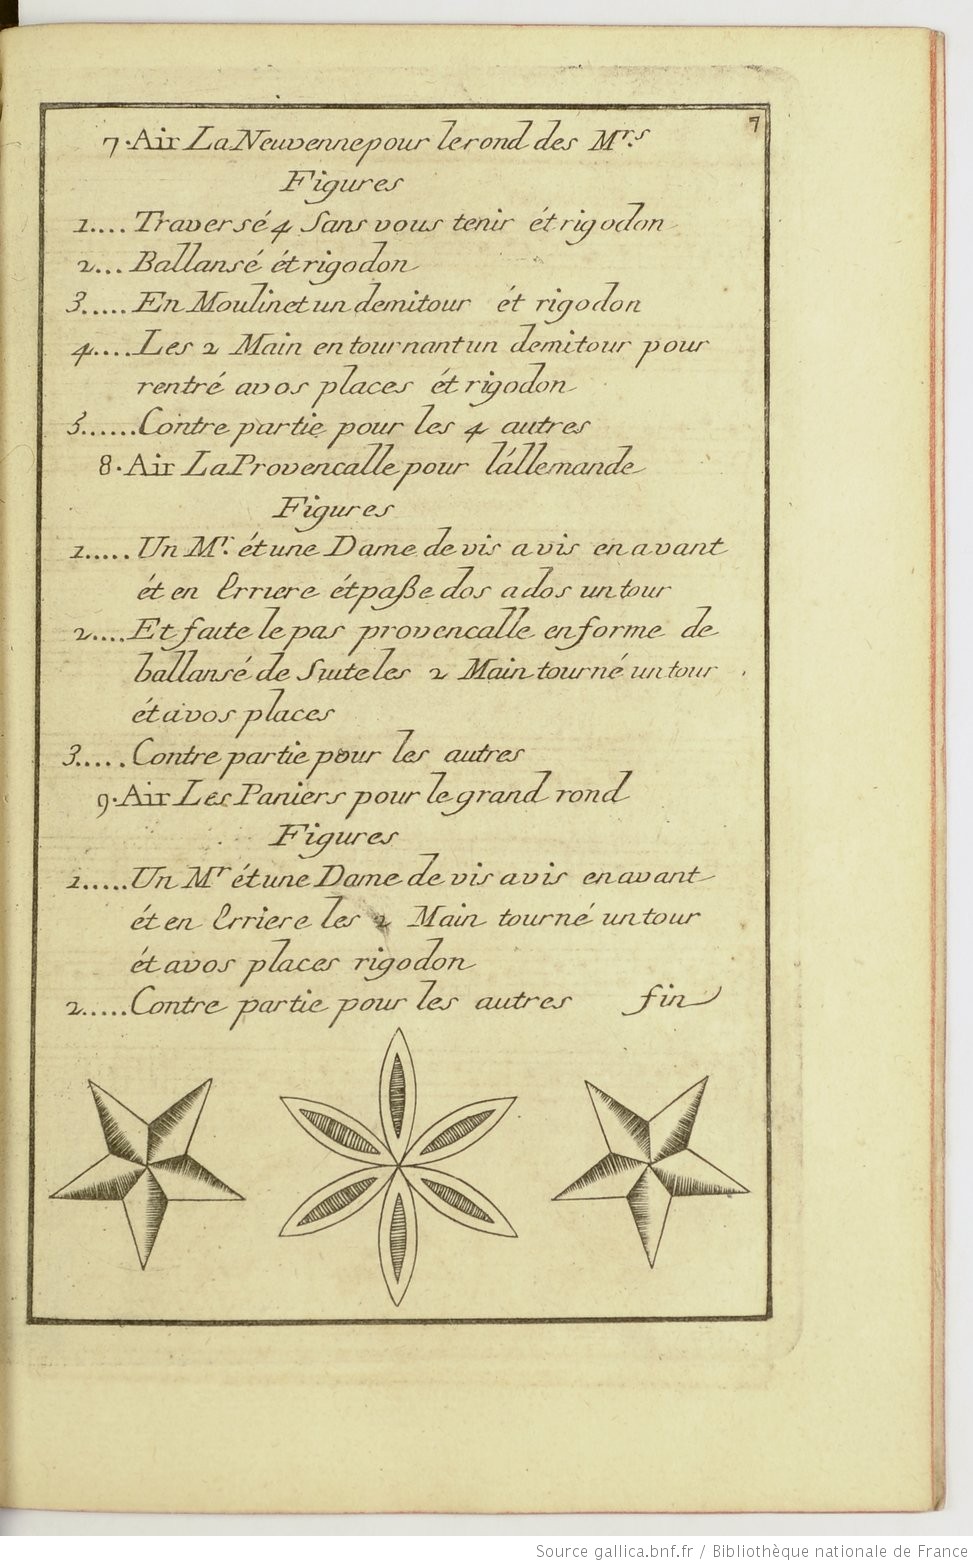 7
7. Air La Neuvenne pour le rond des Mrs.
Figures
1.... Traversé 4 Sans vous tenir ét rigodon
2... Ballansé ét rigodon
3..... En Moulinet un demi tour ét rigodon
4.... Les 2 Main en tournant un demi tour pour
rentré a vos places ét rigodon
5...... Contre partie pour les 4 autres
8. Air La Provencalle pour l'állemande
Figures
1..... Un Mr. ét une Dame de vis a vis en avant
ét en Erriere ét paße dos a dos un tour
2.... Et faite le pas provencalle en forme de
ballansé de Suite les 2 Main tourné un tour
ét a vos places
3..... Contre partie pour les autres
9. Air Les Paniers pour le grand rond
Figures
1..... Un Mr ét une Dame de vis a vis en avant
ét en Erriere les 2 Main tourné un tour
ét a vos places rigodon
2..... Contre partie pour les autres fin
Source gallica.bnf.fr / Bibliothèque nationale de France